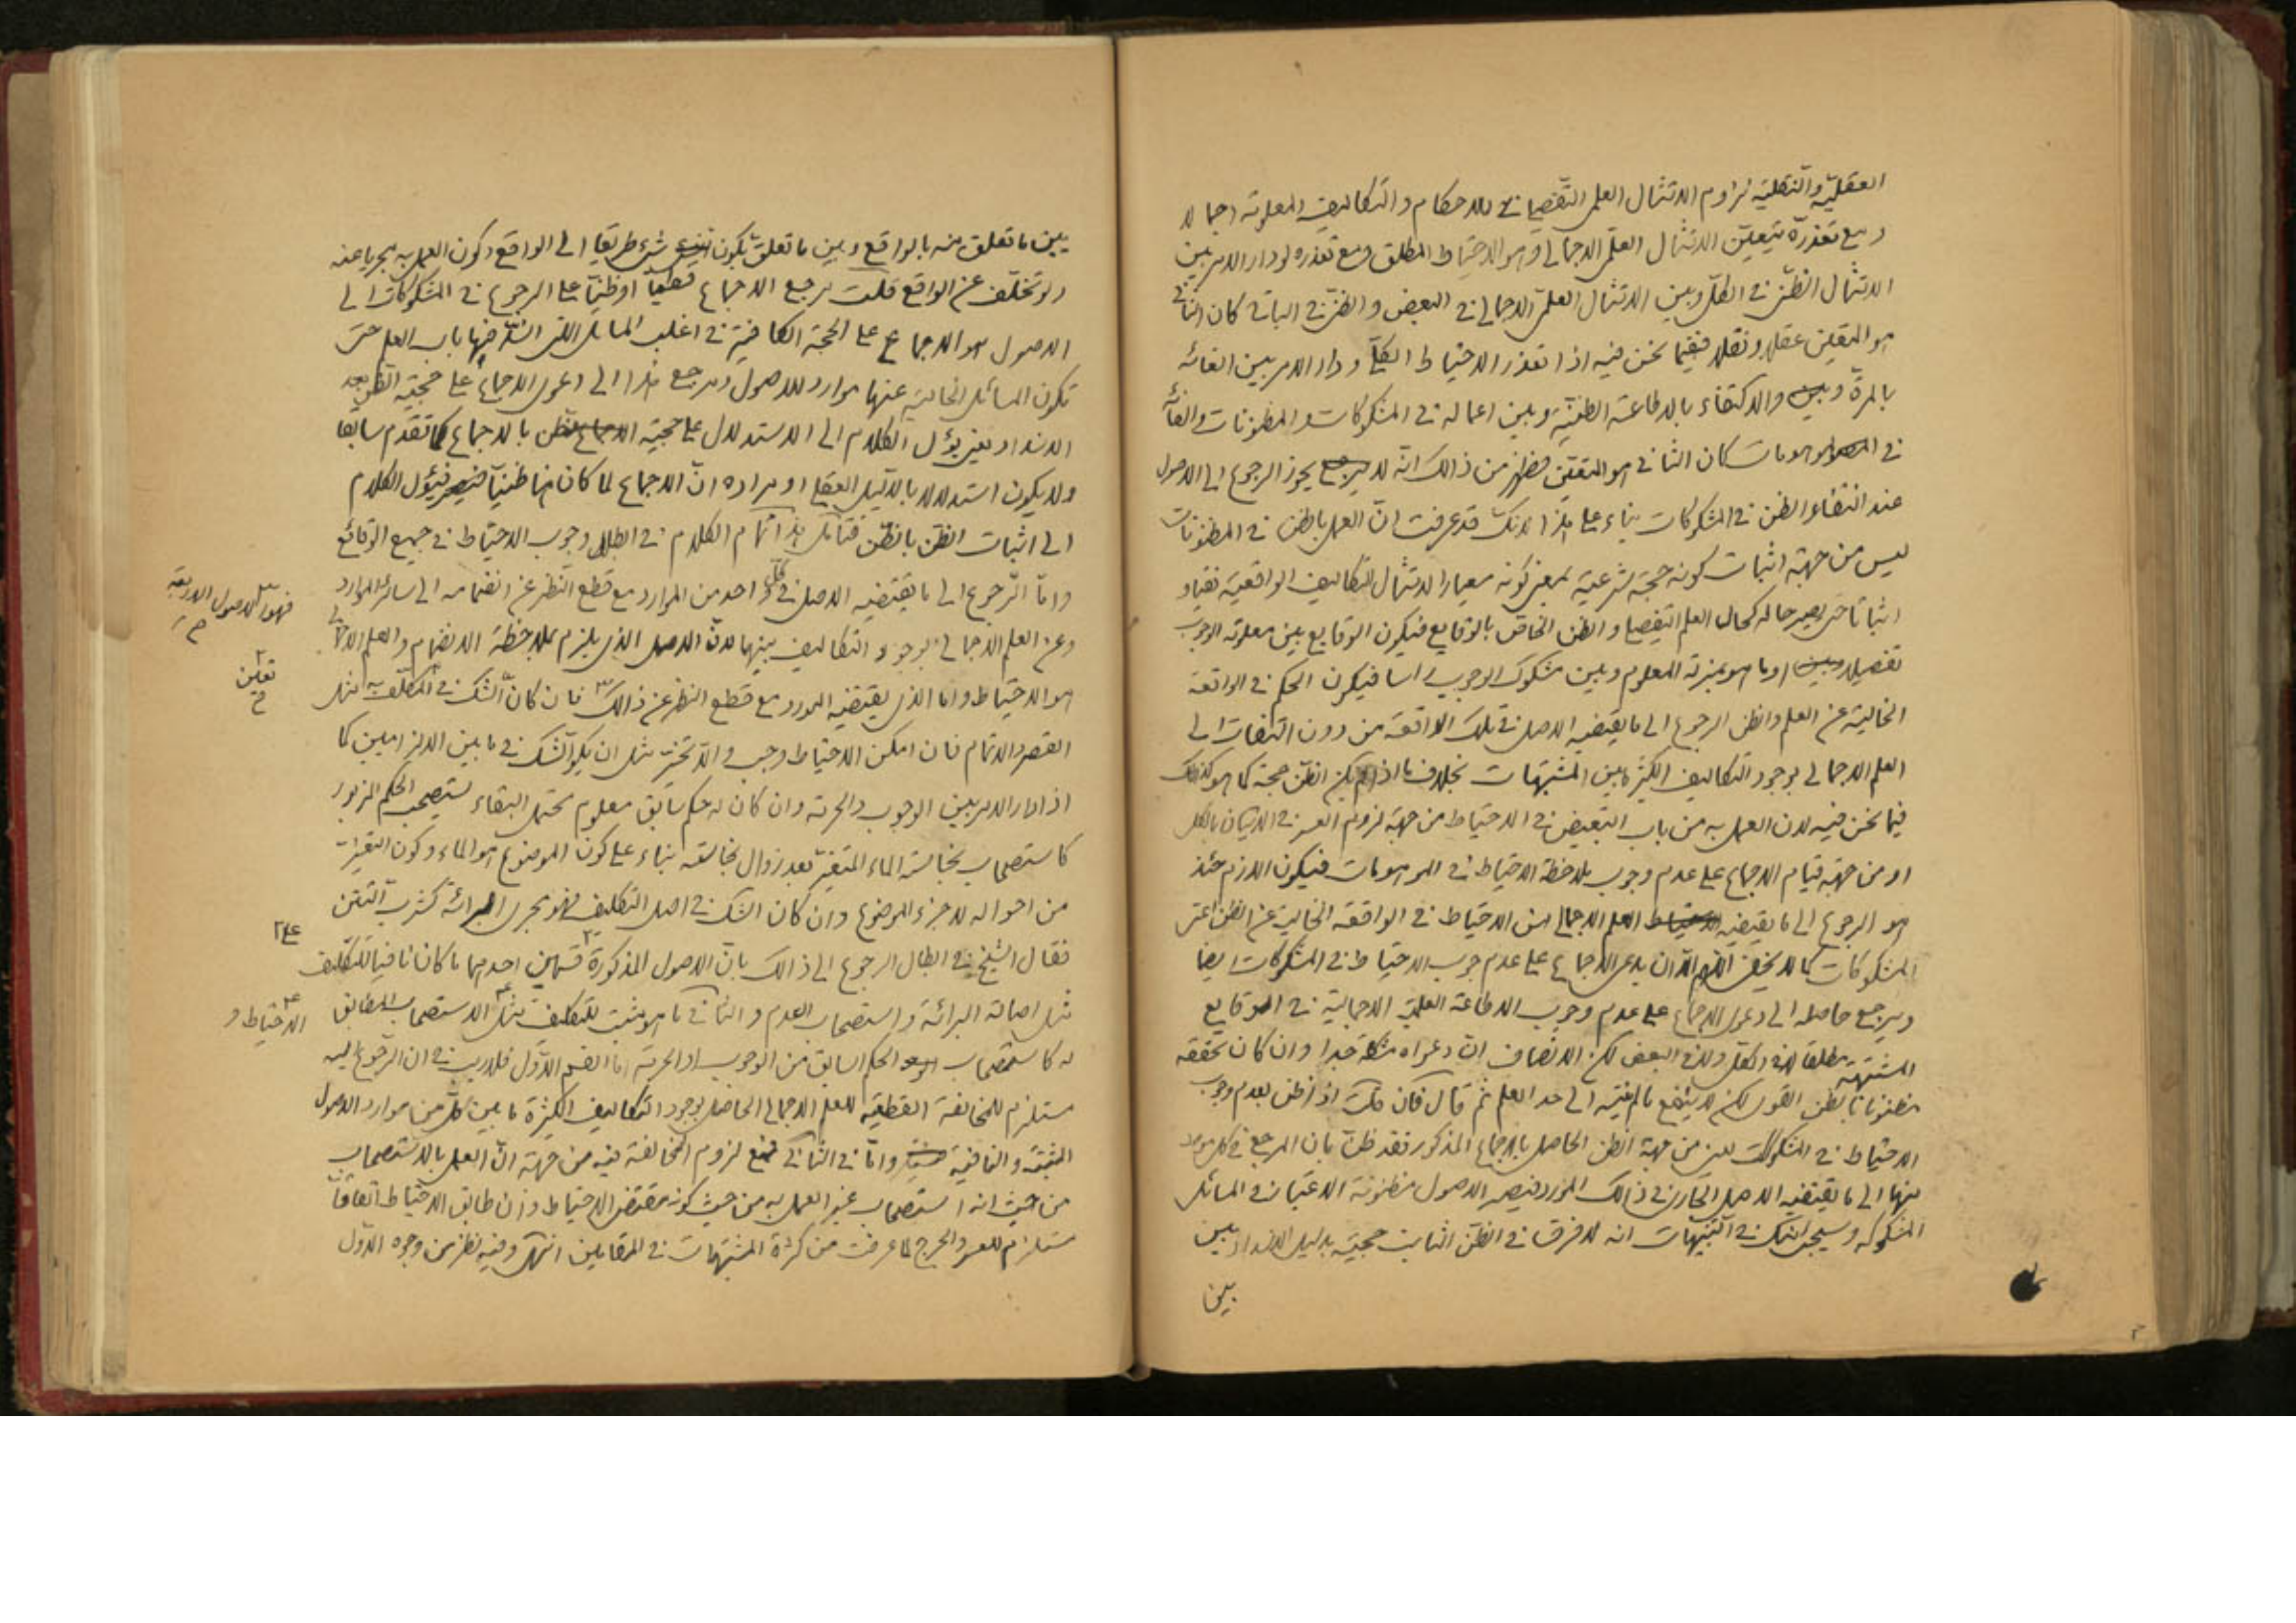 العقليّة والنقليّة لزوم الامتثال العلمى التفصيلى للاحكام والتكاليف المعلومة اجمالا
ومع تعذره يتعين الامتثال العلمى الاجمالى وهو الاحتياط المطلق ومع تعذره لو دار الامر بين
الامتثال الظنى فى الكل وبين الامتثال العلمى الاجمالى فى البعض والظنى فى الباقى كان الثانى
هو المتعين عقلا ونقلا ففيما نحن فيه اذا تعذر الاحتياط الكلى ودار الامر بين الغائه
بالمرة والاكتفاء بالاطاعة الظنية وبين اعماله فى المشكوكات والمظنونات والغائه
فى الموهومات كان الثانى هو المتعين فظهر من ذالك انه لا يجوز الرجوع الى الاصول
عند انتفاء الظن فى المشكوكات بناء على هذا لانك قد عرفت ان العمل بالظن فى المظنونات
ليس من جهة اثبات كونه حجة شرعية بمعنى كونه معيارا لامتثال التكاليف الواقعية نفيا و
اثباتا حتى يصير حاله كحال العلم التفصيلى والظن الخاص بالوقايع فيكون الوقايع بين معلومة الوجوب
تفصيلا او ما هو بمنزلة المعلوم وبين مشكوك الوجوب اسا فيكون الحكم فى الواقعة
الخالية عن العلم والظن الرجوع الى ما يقتضيه الاصل فى تلك الواقعة من دون التفات الى
العلم الاجمالى بوجود التكاليف الكثيرة بين المشتبهات بخلاف ما اذا لم يكن الظن حجة كما هو كذلك
فيما نحن فيه لان العمل به من باب التبعيض فى الاحتياط من جهة لزوم العسر فى الاتيان بالكل
او من جهة قيام الاجماع على عدم وجوب ملاحظة الاحتياط فى الموهومات فيكون اللازم حينئذ
هو الرجوع الى ما يقتضيه العلم الاجمالى من الاحتياط فى الواقعة الخالية عن الظن اعنى
المشكوكات كما لا يخفى اللهم الا ان يدعى الاجماع على عدم وجوب الاحتياط فى المشكوكات ايضا
ويرجع حاصله الى دعوى الاجماع على عدم وجوب الاطاعة العلمية الاجمالية فى الوقايع
المشتبهة مطلقا لا فى الكل ولا فى البعض لكن الانصاف ان دعواه مشكلة جدا وان كان تحققه
مظنونا بالظن القوى لكنه لا ينفع ما لم ينته الى حد العلم ثم قال فان قلت اذا ظن بعدم وجوب
الاحتياط فى المشكوكات من جهة الظن الحاصل بالاجماع المذكور فقد ظن بان المرجع فى كل مورد
منها الى ما يقتضيه الاصل الجارى فى ذالك المورد فيصير الاصول مظنونة الاعتبار فى المسائل
المشكوكه وسيجئ فى التنبيهات انه لا فرق فى الظن الثابت حجيته بدليل الانسداد بين
بين
بين ما تعلق منه بالواقع وبين ما تعلق بكون شئ طريقا الى الواقع وكون العمل به مجزيا عنه
ولو تخلف عن الواقع قلت مرجع الاجماع قطعيا او ظنيا على الرجوع فى المشكوكات الى
الاصول هو الاجماع على الحجة الكافية فى اغلب المسائل التى انسد فيها باب العلم حتى
تكون المسائل الخالية عنها موارد للاصول ومرجع هذا الى دعوى الاجماع على حجية الظن بعد
الانسداد يعنى يؤل الكلام الى الاستدلال على حجية الظن بالاجماع كما تقدم سابقا
ولا يكون استدلالا بالدليل العقلى او مراده ان الاجماع لما كان هنا ظنيا فيؤل الكلام
الى اثبات الظن بالظن فتأمل هذا تمام الكلام فى ابطال وجوب الاحتياط فى جميع الوقائع
واما الرجوع الى ما يقتضيه الاصل فى كل واحد من الموارد مع قطع النظر عن انضمامه الى سائر الموارد
وعن العلم الاجمالى بوجود التكاليف بينها لان الاصل الذى يلزم بملاحظة الانضمام والعلم الاجمالى
هو الاحتياط واما الذى يقتضيه المورد مع قطع النظر عن ذالك فان كان الشك فى المكلف به مثل
القصر والاتمام فان امكن الاحتياط وجب والا تخير مثل ان يكون الشك فى ما بين الالزامين كما
اذا دار الامر بين الوجوب والحرمة وان كان له حكم سابق معلوم محتمل البقاء يستصحب الحكم المزبور
كاستصحاب نجاسة الماء المتغير بعد زوال نجاسته بناء على كون الموضوع هو الماء وكون التغيرات
من احواله لا جزء الموضوع وان كان الشك فى اصل التكليف فهو مجرى البرائة كشرب التتن
فقال الشيخ فى ابطال الرجوع الى ذالك بان الاصول المذكورة قسمين احدهما ما كان نافيا للتكليف
مثل اصالة البرائة واستصحاب العدم والثانى ما هو مثبت للتكليف مثل الاستصحاب المطابق
له كاستصحاب الحكم السابق من الوجوب او الحرمة اما القسم الاول فلا ريب فى ان الرجوع اليه
مستلزم للمخالفة القطعية للعلم الاجمالى الحاصل بوجود التكاليف الكثيرة ما بين كل من موارد الاصول
المثبتة والنافية واما فى الثانى فمع لزوم المخالفة فيه من جهة ان العمل بالاستصحاب
من حيث انه استصحاب غير العمل به من حيث كونه مقتضى الاحتياط وان طابق الاحتياط اتفاقا
مستلزم للعسر والحرج لما عرفت من كثرة المشتبهات فى المقامين انتهى وفيه نظر من وجوه الاول
فهو الاصول الاربعة
تعلق
على
الاحتياط و